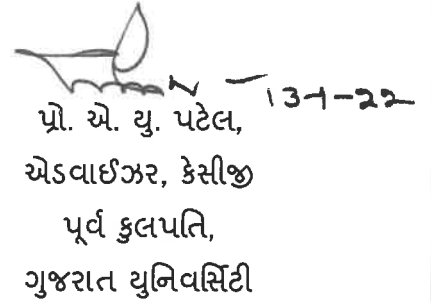 13-1-22
પ્રો. એ. યુ. પટેલ,
એડવાઈઝર, કેસીજી
પૂર્વ કુલપતિ,
ગુજરાત યુનિવર્સિટી